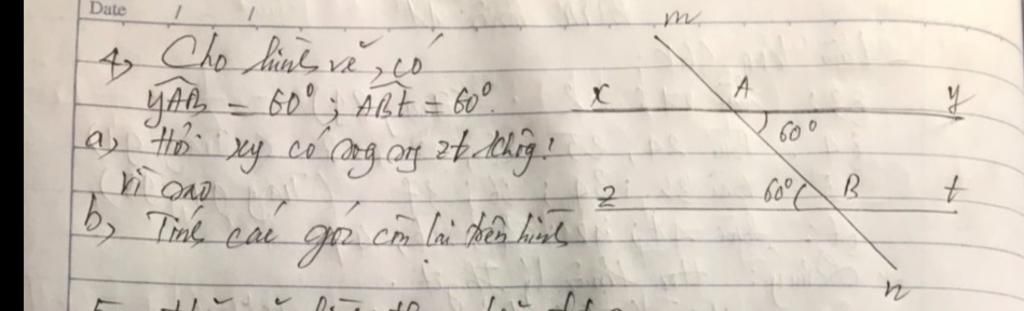 Date / /
4, Cho hình vẽ, có
yAB = 60°; ABt = 60°.
a, Hỏi xy có song song zt không?
vì sao
b, Tính các góc còn lại trên hình
m
x A y
60°
z 60° B t
n